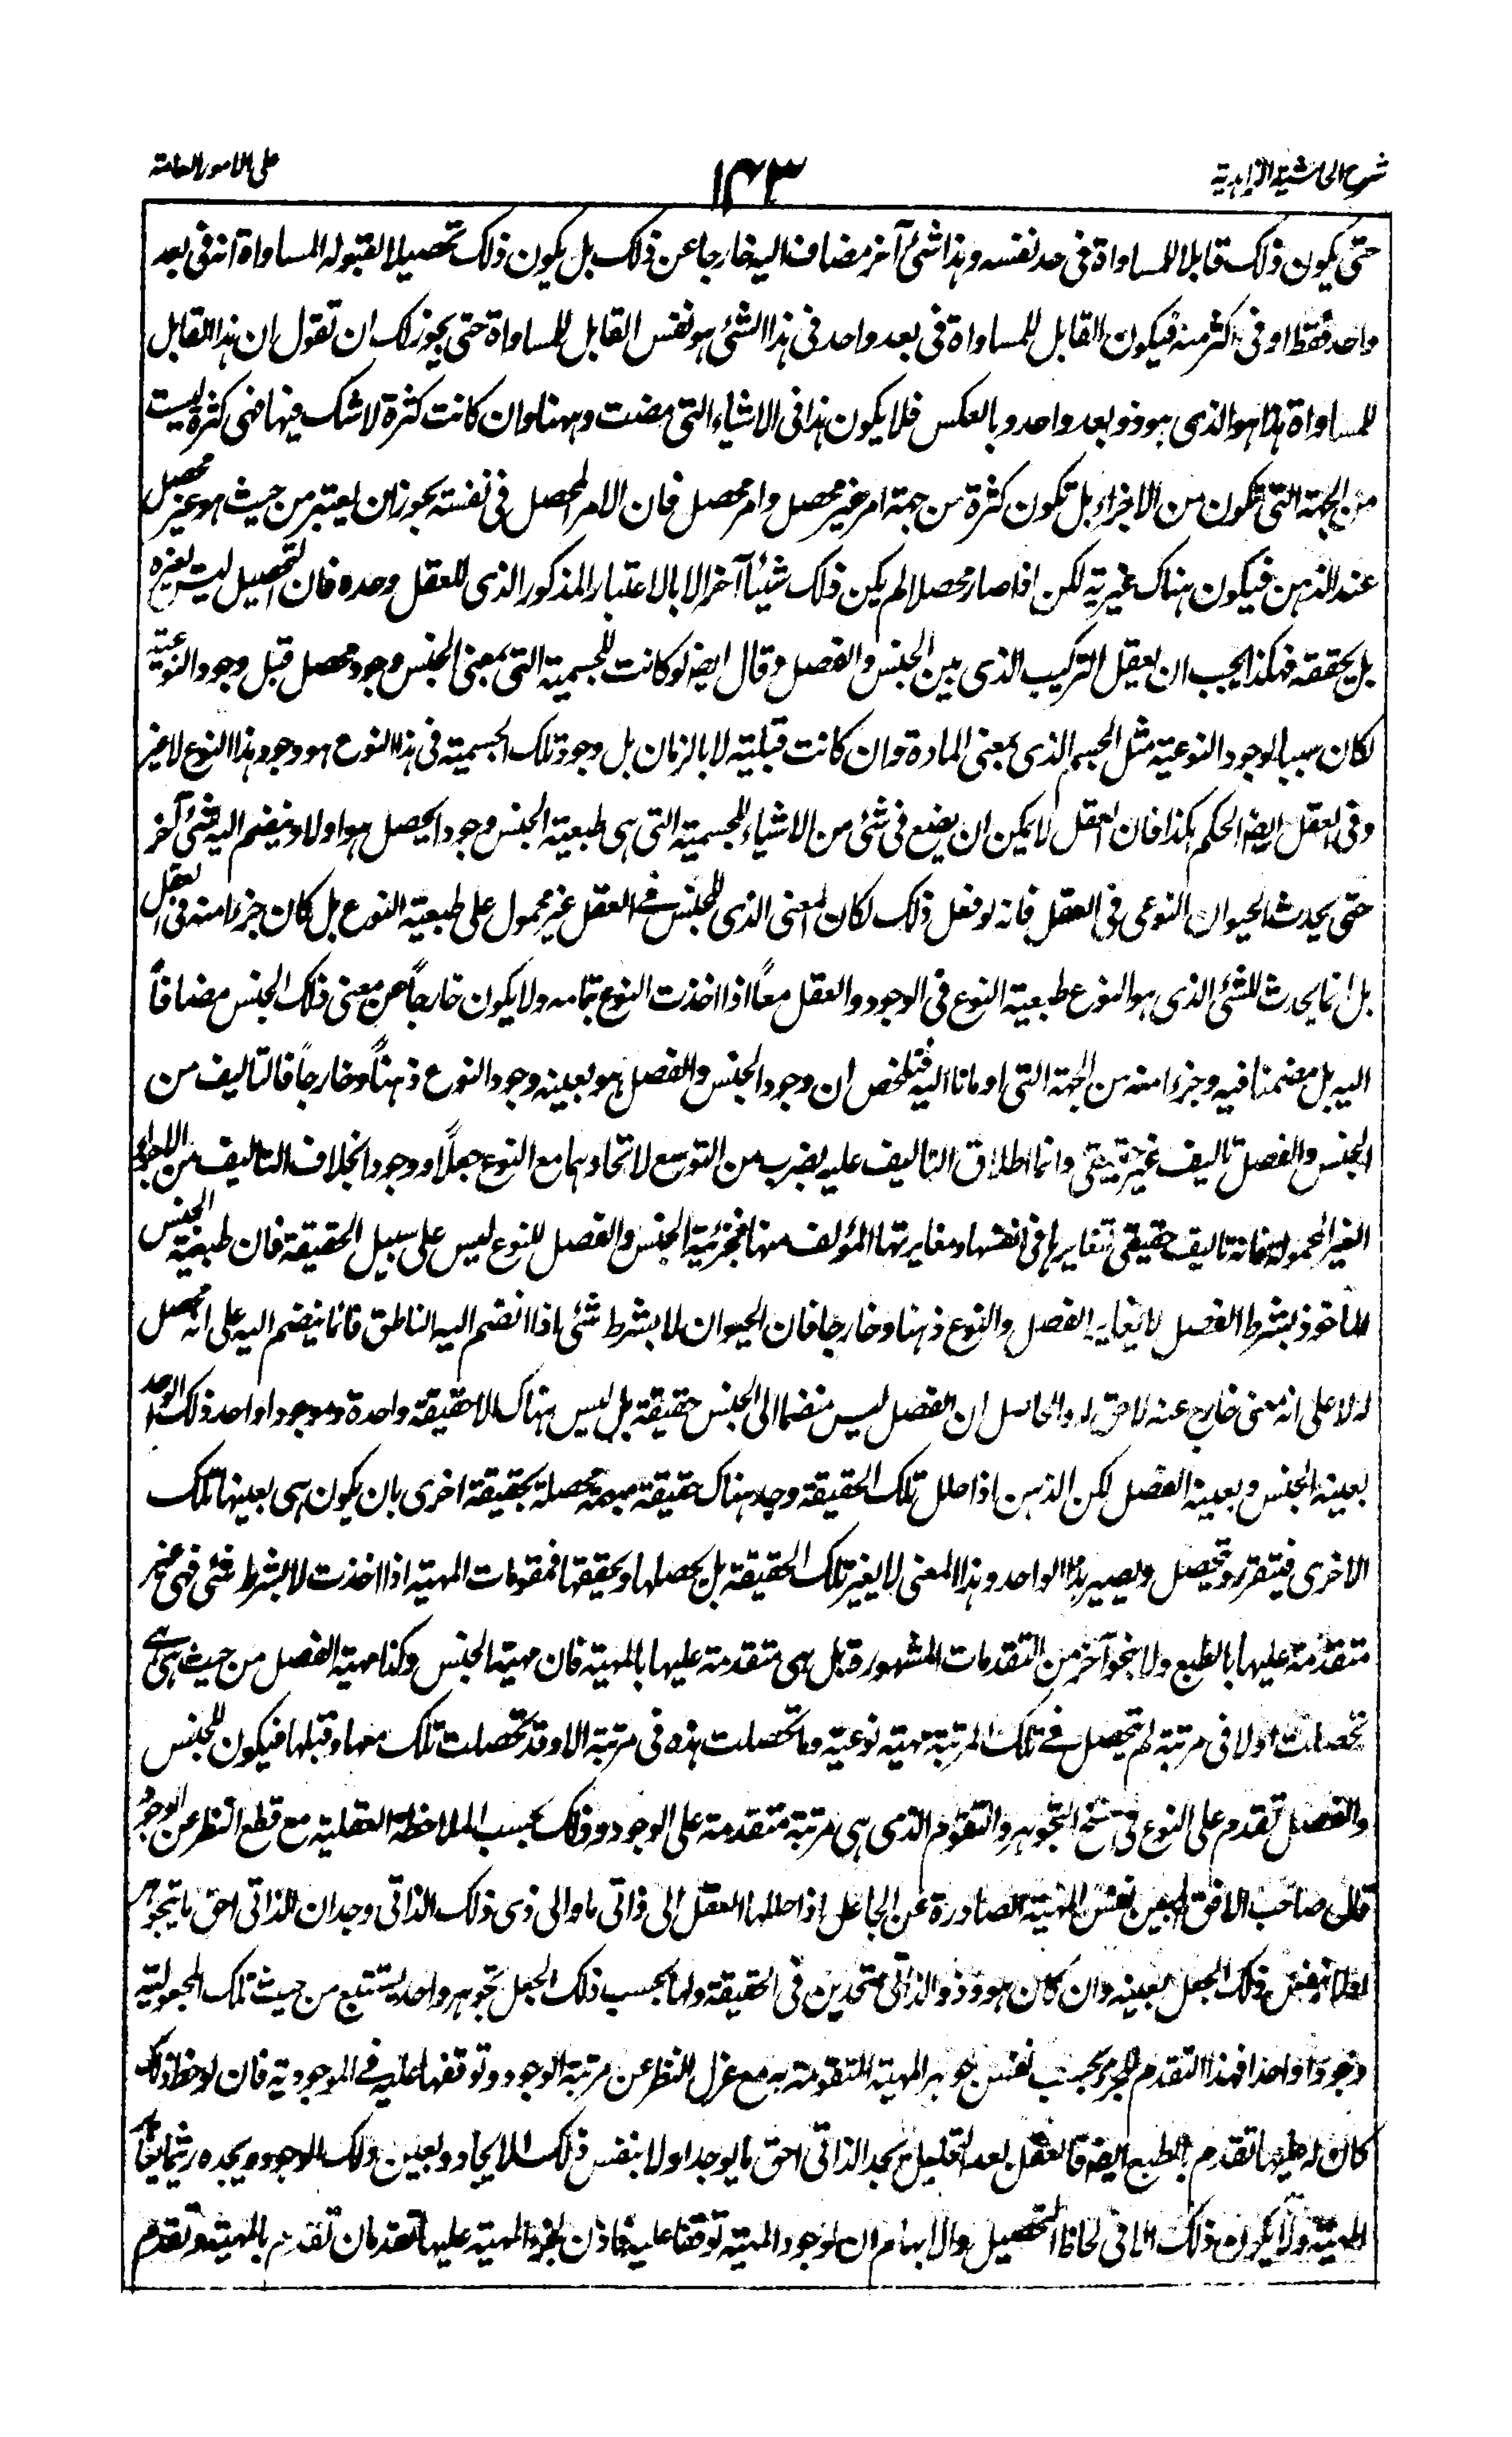 شرح الحاشية الزاهدية
١٤٣
على الامور العامة
حتى يكون ذلك قابلا للمساواة فى حد نفسه وهذا شئ آخر مضاف اليه خارجا عن ذلك بل يكون ذلك تحصيلا لقبوله للمساواة انه فى بعد
واحد فقط او فى اكثر منه فيكون القابل للمساواة فى بعد واحد فى هذا الشئ هو نفس القابل للمساواة حتى يجوز لك ان تقول ان هذا القابل
للمساواة هذا هو الذى هو ذو بعد واحد وبالعكس فلا يكون هذا فى الاشياء التى مضت وههنا وان كانت كثرة لا شك فيها فهى كثرة ليست
من الجهة التى تكون من الاجزاء بل تكون كثرة من جهة امر غير محصل وامر محصل فان الامر المحصل فى نفسه يجوز ان يعتبر من حيث هو غير محصل
عند الذهن فيكون هناك غيرية لكن اذا صار محصلا لم يكن ذلك شيئا آخر الا بالاعتبار المذكور الذى للعقل وحده فان التحصيل ليس يغيره
بل يحققه فهكذا يجب ان يعقل التركيب الذى بين الجنس والفصل وقال ايضا لو كانت للجسمية التى بمعنى الجنس وجود محصل قبل وجود النوعية
لكان سببا لوجود النوعية مثل الجسم الذى بمعنى المادة وان كانت قبلية لا بالزمان بل وجود تلك الجسمية فى هذا النوع هو وجود هذا النوع لا غير
وفى العقل ايضا الحكم هكذا فان العقل لا يمكن ان يضع فى شئ من الاشياء للجسمية التى هى طبيعة الجنس وجودا يحصل هو اولا وينضم اليه شئ آخر
حتى يحدث الحيوان النوعى فى العقل فانه لو فعل ذلك لكان المعنى الذى للجنس فى العقل غير محمول على طبيعة النوع بل كان جزءا منه فى العقل
بل انما يحدث للشئ الذى هو النوع طبيعة النوع فى الوجود والعقل معاً اذا اخذت النوع بتمامه ولا يكون خارجاً عن معنى ذلك الجنس مضافاً
اليه بل مضمنا فيه وجزءا منه من الجهة التى اومانا اليه فتلخص ان وجود الجنس والفصل هو بعينه وجود النوع ذهناً وخارجاً فالتاليف من
الجنس والفصل تاليف غير حقيقى وانما اطلاق التاليف عليه بضرب من التوسع لاتحادهما مع النوع جعلاً ووجودا بخلاف التاليف من الاجزاء
الغير المحمولة فانه تاليف حقيقى لتغايرها فى انفسها ومغايرتها المؤلف منها فجزئية الجنس والفصل للنوع ليس على سبيل الحقيقة فان طبيعة الجنس
الماخوذ بشرط الفصل لا يغاير الفصل والنوع ذهنا وخارجا فان الحيوان لا بشرط شئ اذا انضم اليه الناطق فانما ينضم اليه على انه محصل
له لا على انه معنى خارج عنه لاحق له والحاصل ان الفصل ليس منضما الى الجنس حقيقة بل ليس هناك الا حقيقة واحدة وموجود واحد ذلك الواحد
بعينه الجنس وبعينه الفصل لكن الذهن اذا حلل تلك الحقيقة وجد هناك حقيقة مبهمة محصلة بحقيقة اخرى بان يكون هى بعينها تلك
الاخرى فيتقرر ويتحصل ويصير هذا الواحد وهذا المعنى لا يغير تلك الحقيقة بل يحصلها ويحققها فمقومات المهية اذا اخذت لا بشرط شئ فهى غير
متقدمة عليها بالطبع ولا بنحو آخر من التقدمات المشهورة بل هى متقدمة عليها بالمهية فان مهية الجنس وكذا مهية الفصل من حيث هى هى
تحصلت اولا فى مرتبة لم يتحصل فى تلك المرتبة مهية نوعية وما تحصلت هذه فى مرتبة الا وقد تحصلت تلك معها وقبلها فيكون للجنس
والفصل تقدم على النوع فى سنخ التجوهر والتقوم الذى هى مرتبة متقدمة على الوجود وذلك بحسب الملاحظة العقلية مع قطع النظر عن الوجود
قال صاحب الافق المبين نفس المهية الصادرة عن الجاعل اذا حللها العقل الى ذاتى ما والى ذى ذلك الذاتى وجد ان الذاتى احق بالتجوهر
اولا بنفس ذلك الجعل بعينه وان كان هو وذو الذاتى متحدين فى الحقيقة ولهما بحسب ذلك الجعل تجوهر واحد يستتبع من حيث تلك المجعولية
وجودا واحدا فهذا التقدم للجزء بحسب نفس جوهر المهية المتقومة به مع عزل النظر عن مرتبة الوجود وتوقفها عليه فى الموجودية فان لوحظ ذلك
كان له عليها تقدم بالطبع ايضا فالعقل بعد التحليل يجد الذاتى احق بالوجود اولا بنفس ذلك الايجاد وبعين ذلك الوجود ويجده
المهية ولا يكون ذلك الا فى لحاظ التحصيل والابهام ان لوجود المهية توقفا عليه فاذن لجزء المهية عليها تقدمان تقدم بالمهية وتقدم